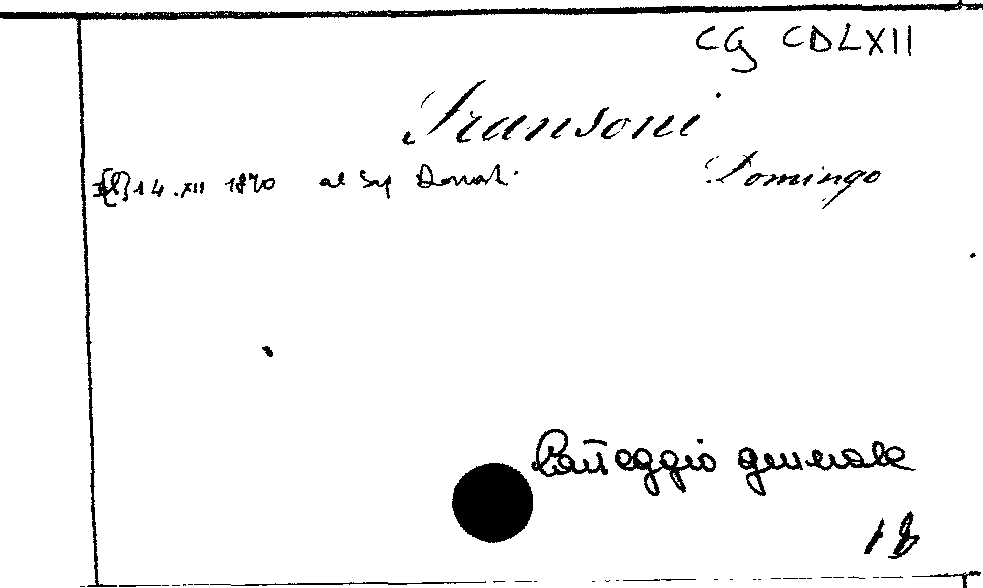 CG CDLXII
Fransoni
14.XII 1870 al Sig Donati
Domingo
Carteggio generale
18